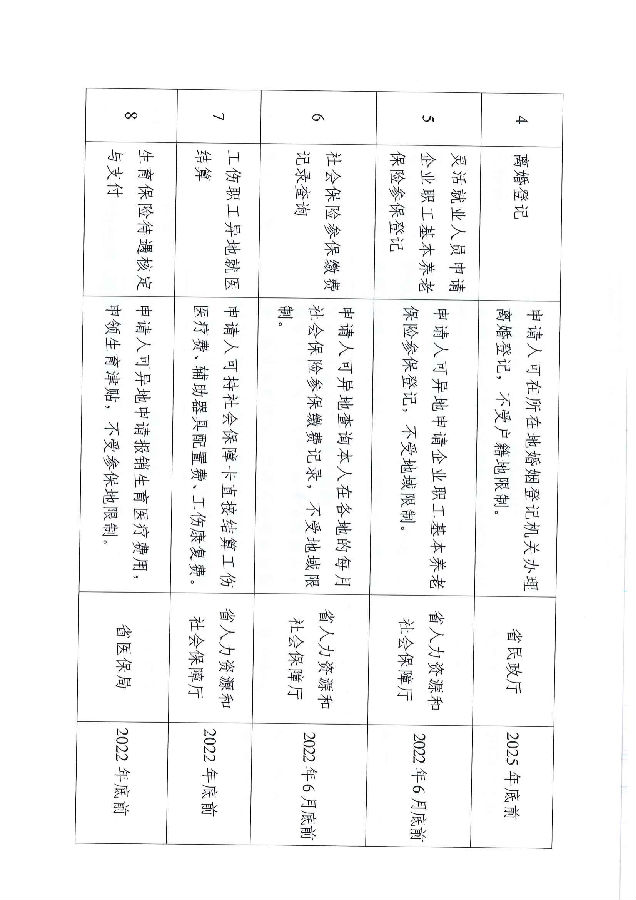 4
离婚登记
申请人可在所在地婚姻登记机关办理
离婚登记，不受户籍地限制。
省民政厅
2025年底前
5
灵活就业人员申请
企业职工基本养老
保险参保登记
申请人可异地申请企业职工基本养老
保险参保登记，不受地域限制。
省人力资源和
社会保障厅
2022年6月底前
6
社会保险参保缴费
记录查询
申请人可异地查询本人在各地的每月
社会保险参保缴费记录，不受地域限
制。
省人力资源和
社会保障厅
2022年6月底前
7
工伤职工异地就医
结算
申请人可持社会保障卡直接结算工伤
医疗费、辅助器具配置费、工伤康复费。
省人力资源和
社会保障厅
2022年底前
8
生育保险待遇核定
与支付
申请人可异地申请报销生育医疗费用，
申领生育津贴，不受参保地限制。
省医保局
2022年底前